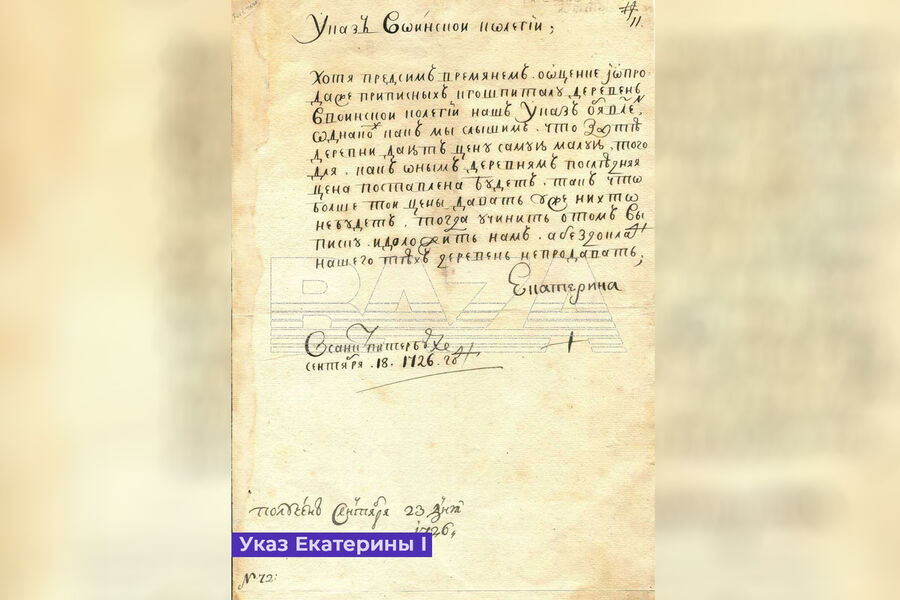 Указъ Воинской колегіи;
11
Хотя предсимъ временемъ. опщение іѡпро
даже приписныхъ кгошпиталу деревень
Ввоинской колегіи нашъ Указъ
ѡднако какъ мы слышимъ. что затѣ
деревни даютъ цену самую малую, того
для. какъ ѡнымъ деревнямъ послѣдняя
цена поставлена будетъ. такъ что
болше той цены давать уже никтѡ
небудетъ. тогда учинить отомъ вы
писку идоложить намъ. абездокла
нашего тѣхъ деревень непродавать;
Екатерина
BAZA
Всанктъ питеръ бурхе
сентября .18. 1726. го
получѣнъ Сентября 23 дня
1726
Указ Екатерины I
№ 72: